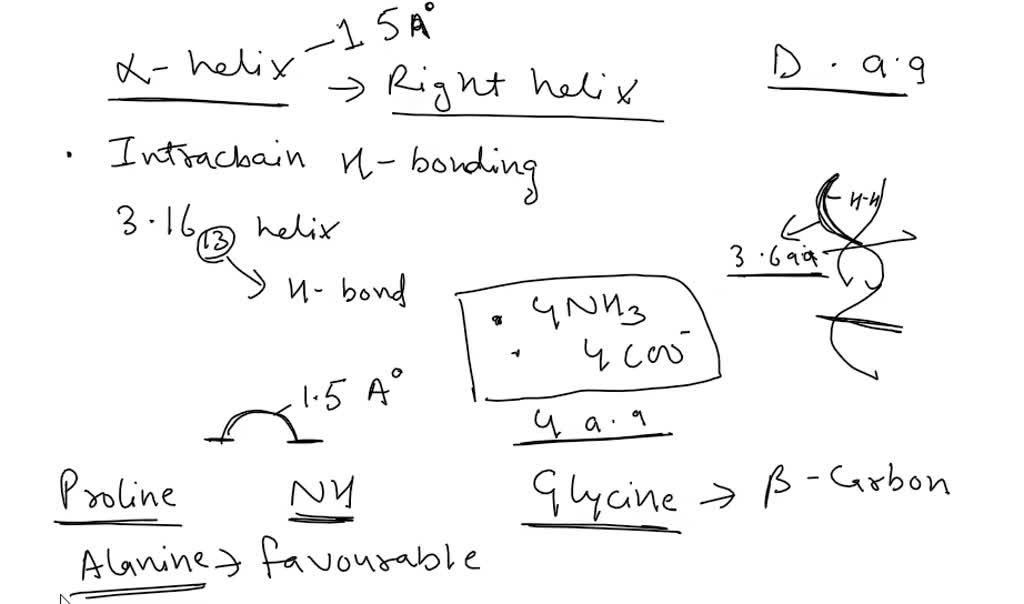 α-helix - 1.5 A°
→ Right helix
D. a.a
• Intrachain H-bonding
3.16 13 helix
H-H
3.6 aa
→ H-bond
• 4NH3
• 4 COO⁻
1.5 A°
4 a.a
Proline NH Glycine → β-Carbon
Alanine → favourable